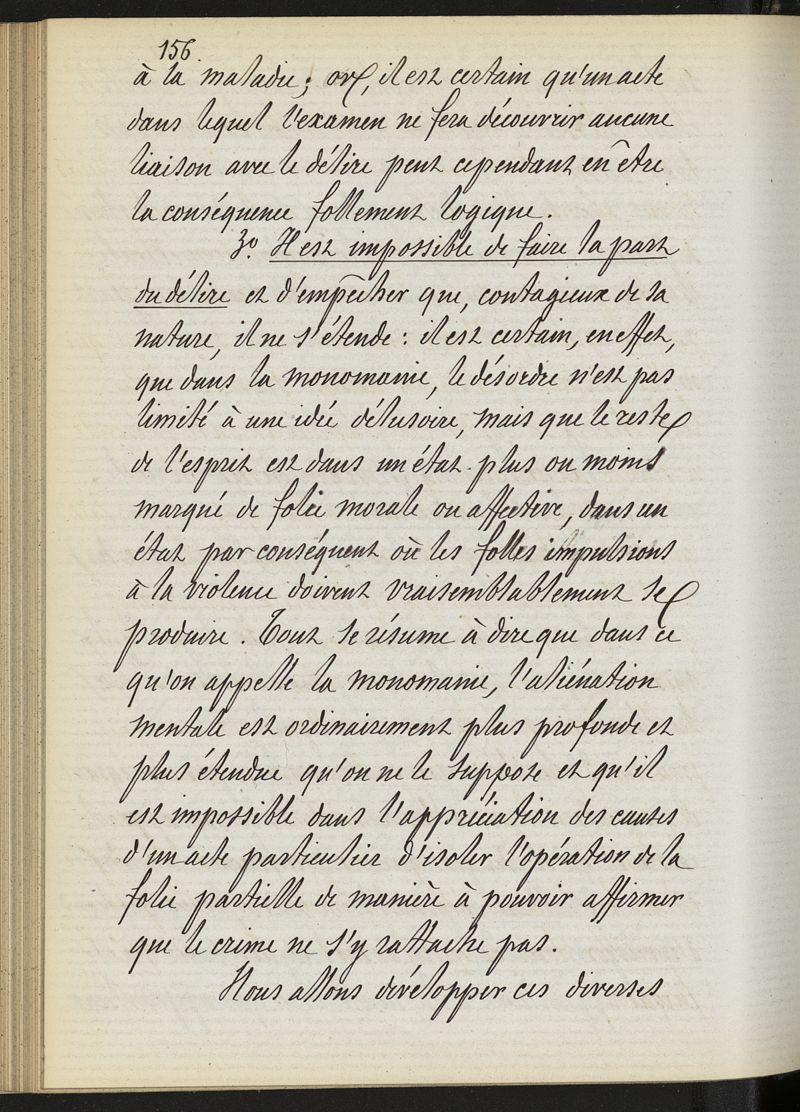 156
à la maladie; or, il est certain qu'un acte
dans lequel l'examen ne fera découvrir aucune
liaison avec le délire peut cependant en être
la conséquence follement logique.
3º Il est impossible de faire la part
du délire et d'empêcher que, contagieux de sa
nature, il ne s'étende : il est certain, en effet,
que dans la monomanie, le désordre n'est pas
limité à une idée délusoire, mais que le reste
de l'esprit est dans un état plus ou moins
marqué de folie morale ou affective, dans un
état par conséquent où les folles impulsions
à la violence doivent vraisemblablement se
produire. Tout se résume à dire que dans ce
qu'on appelle la monomanie, l'aliénation
mentale est ordinairement plus profonde et
plus étendue qu'on ne le suppose et qu'il
est impossible dans l'appréciation des causes
d'un acte particulier d'isoler l'opération de la
folie partielle de manière à pouvoir affirmer
que le crime ne s'y rattache pas.
Nous allons développer ces diverses